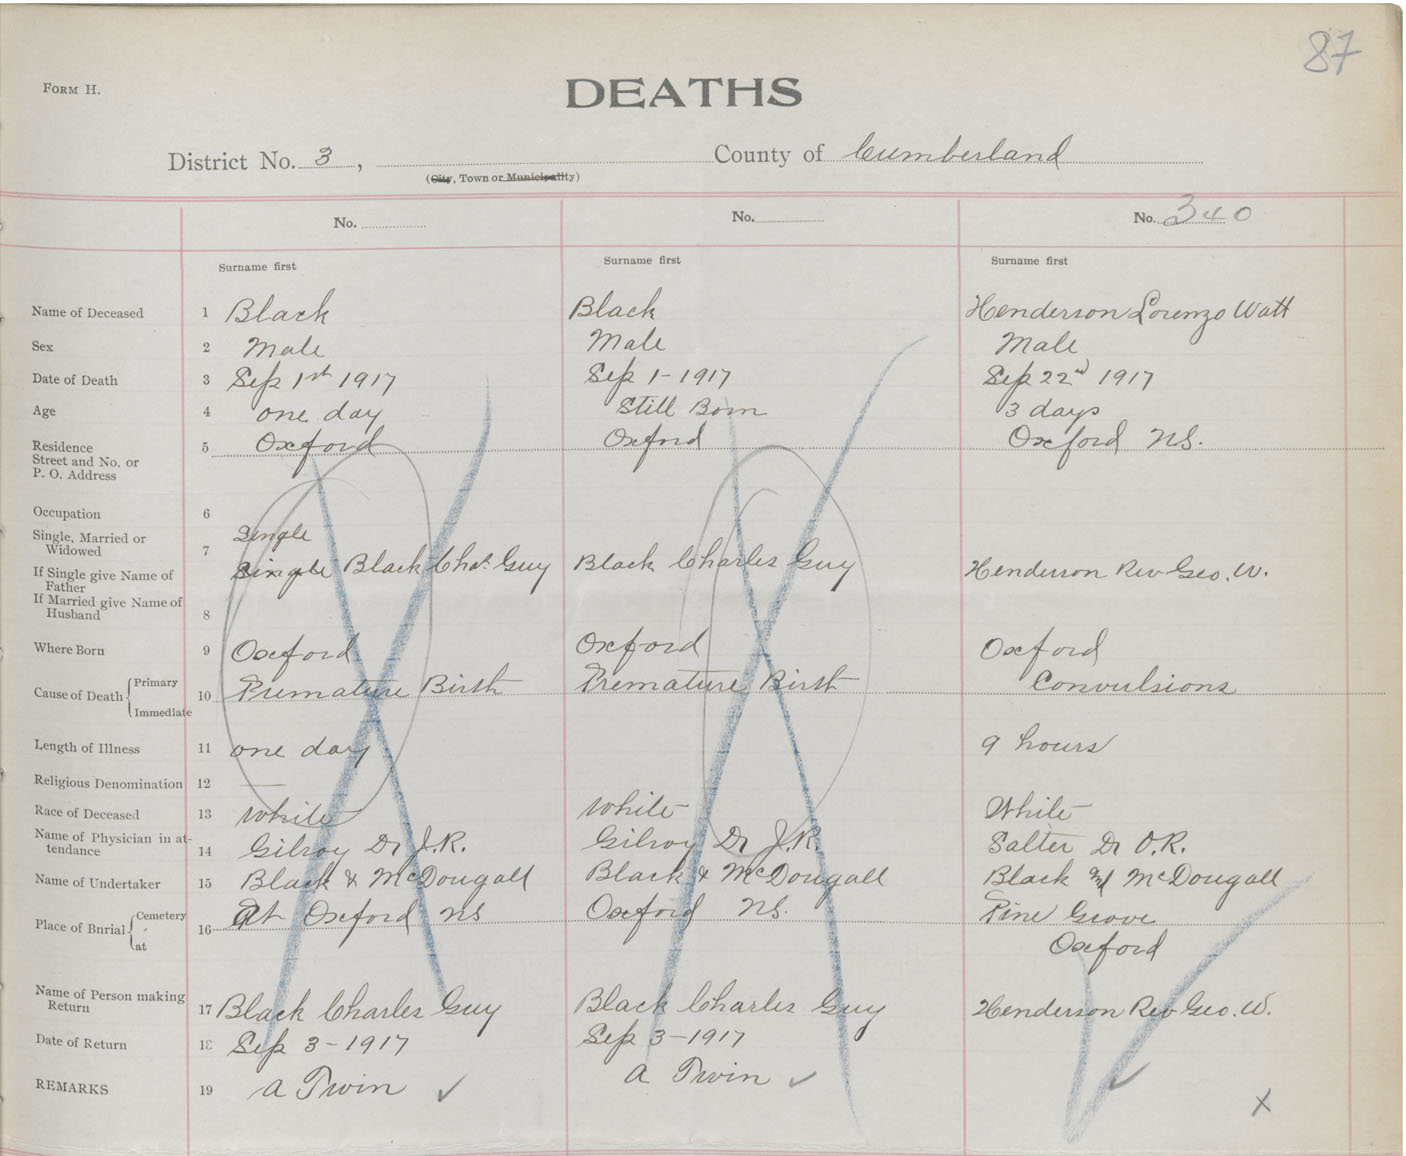 87
FORM H.
DEATHS
District No. 3, County of Cumberland
(City, Town or Municipality)
No. No. No. 340
Surname first Surname first Surname first
Name of Deceased 1 Black Black Henderson Lorenzo Watt
Sex 2 Male Male Male
Date of Death 3 Sep 1st 1917 Sep 1-1917 Sep 22nd 1917
Age 4 one day Still Born 3 days
Residence Street and No. or P. O. Address 5 Oxford Oxford Oxford NS.
Occupation 6
Single
Single, Married or Widowed 7
If Single give Name of Father Single Black Chas. Guy Black Charles Guy Henderson Rev Geo. W.
If Married give Name of Husband 8
Where Born 9 Oxford Oxford Oxford
Cause of Death { Primary Immediate 10 Premature Birth Premature Birth Convulsions
Length of Illness 11 one day 9 hours
Religious Denomination 12 —
Race of Deceased 13 White White White
Name of Physician in attendance 14 Gilroy Dr J.R. Gilroy Dr J.R. Salter Dr O.R.
Name of Undertaker 15 Black & McDougall Black & McDougall Black and McDougall
Place of Burial { Cemetery at 16 At Oxford NS Oxford NS. Pine Grove
Oxford
Name of Person making Return 17 Black Charles Guy Black Charles Guy Henderson Rev Geo. W.
Date of Return 18 Sep 3-1917 Sep 3-1917
REMARKS 19 a Twin ✓ a Twin ✓ ✓ x